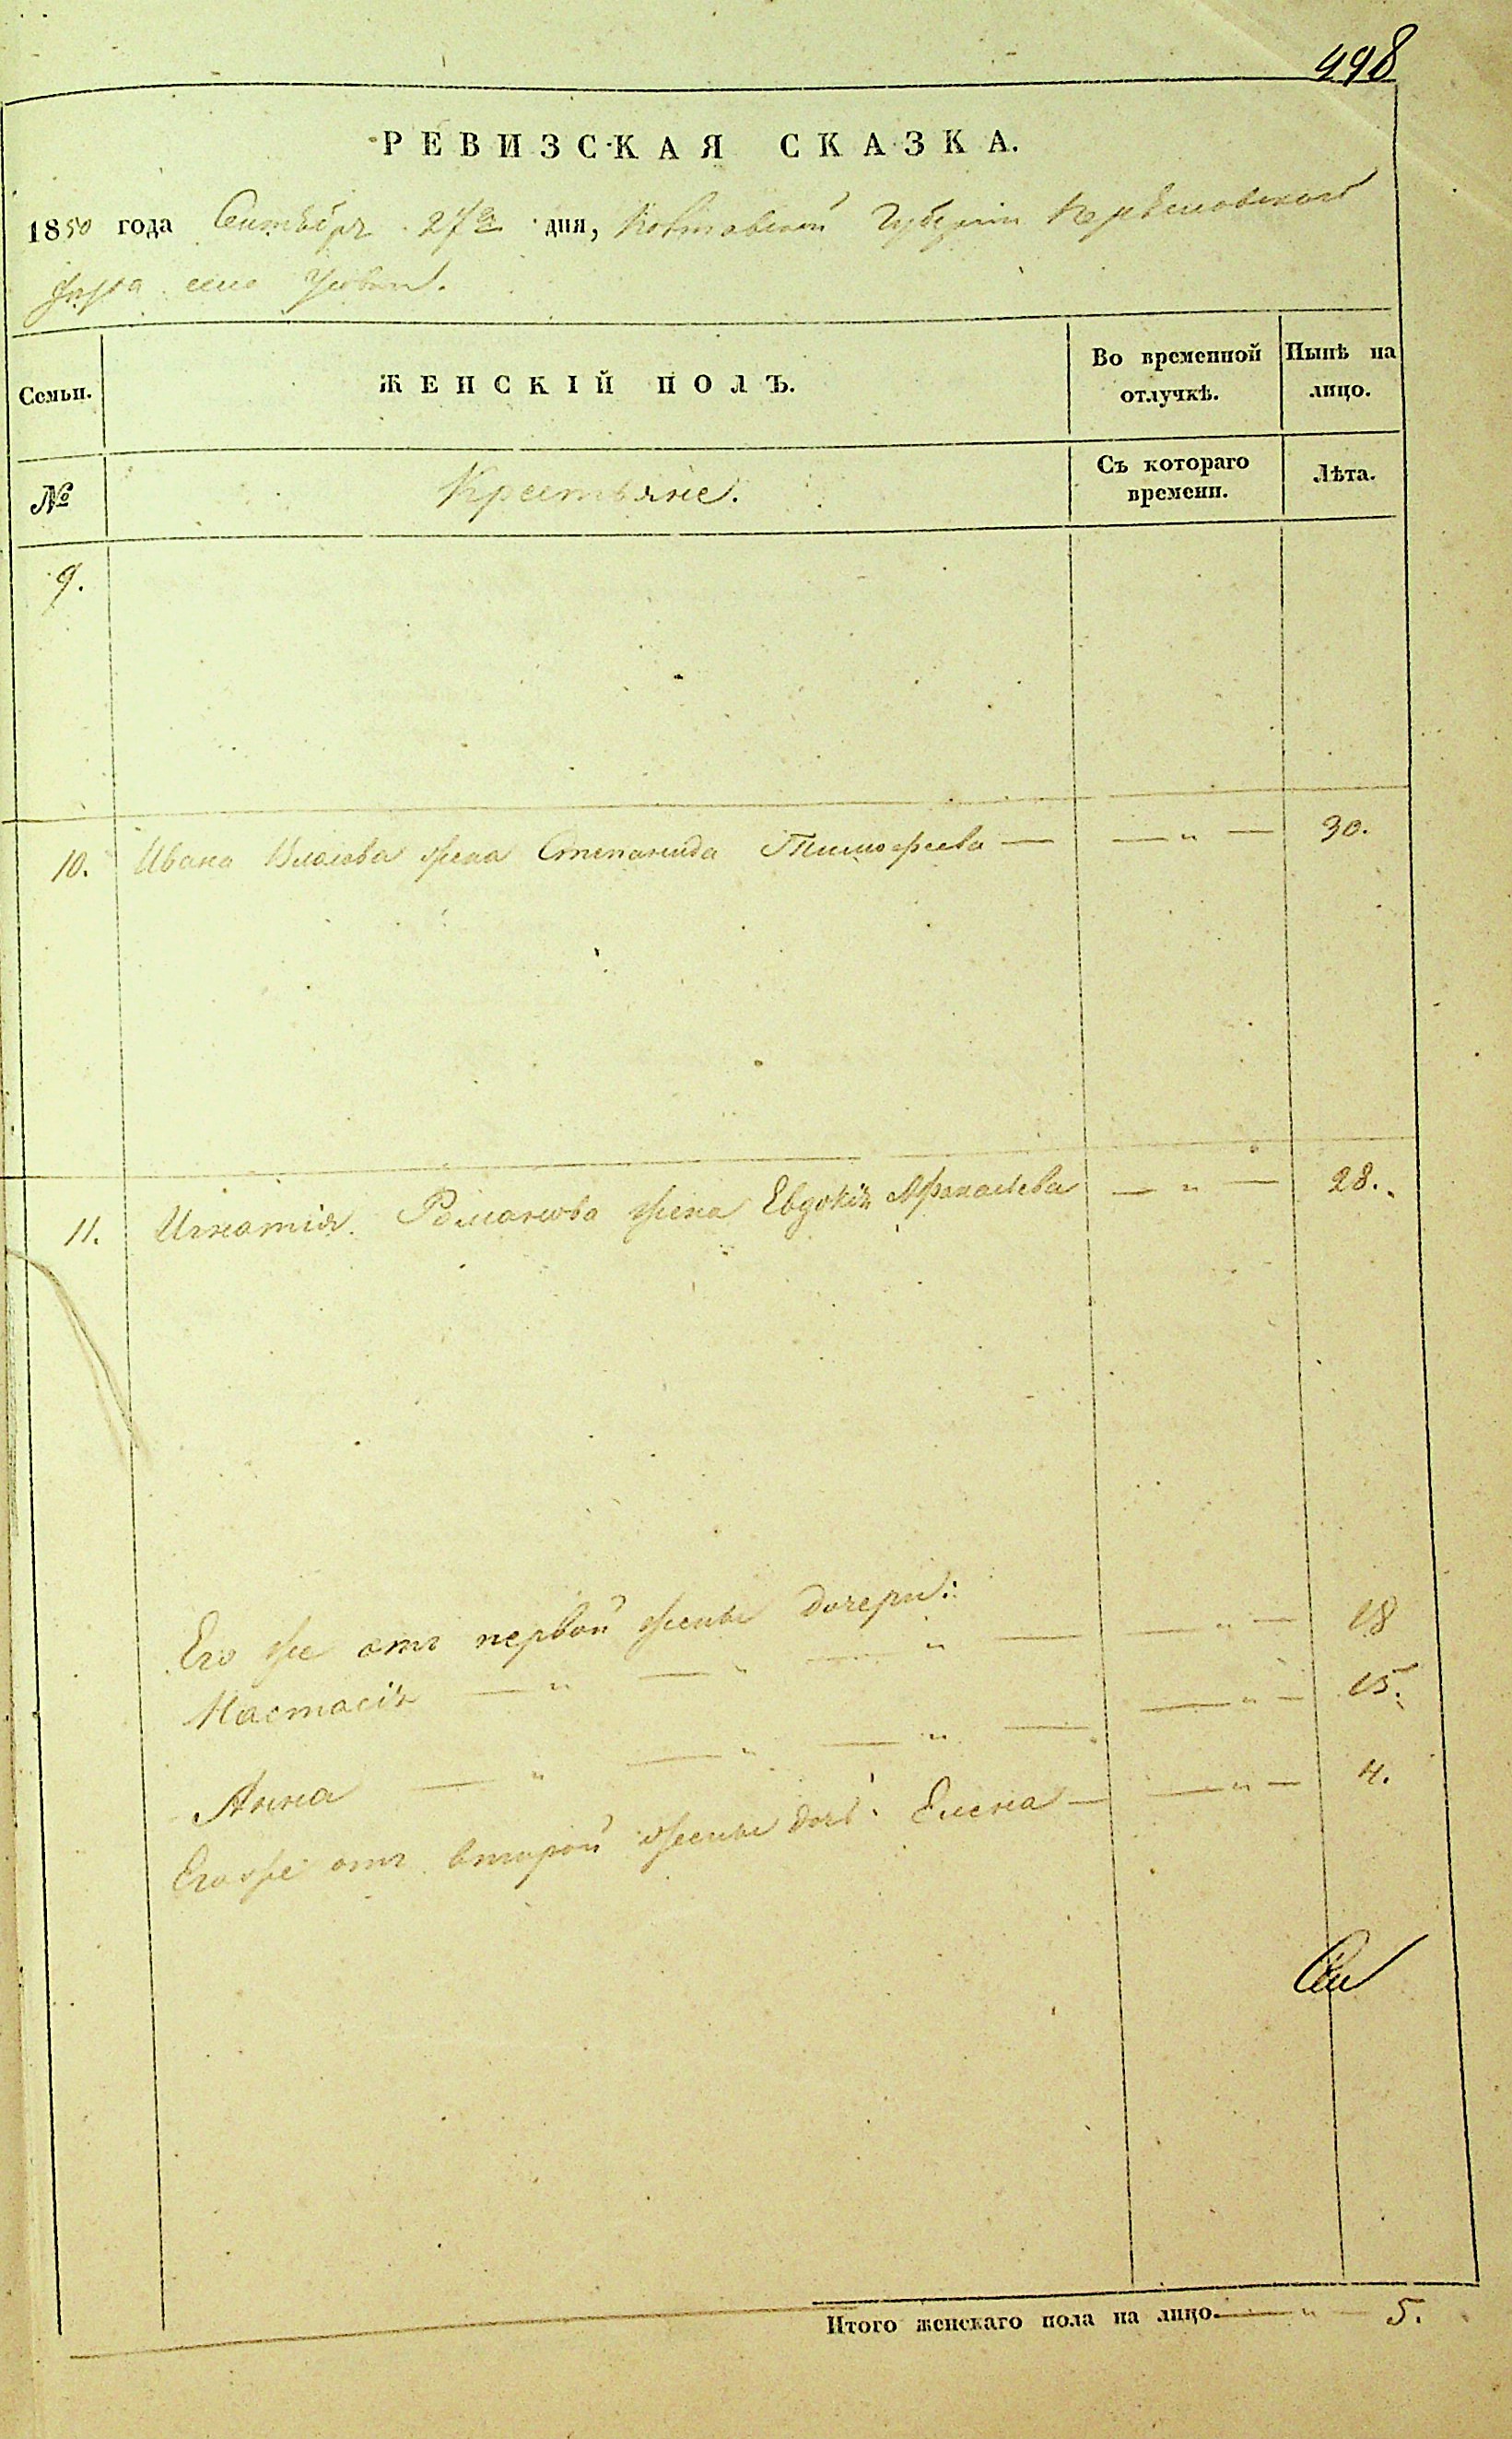 498
РЕВИЗСКАЯ СКАЗКА.
1850 года Сентября 27го дня, Полтавской Губернии
села
Семьи. ЖЕНСКІЙ ПОЛЪ. Во временной отлучкѣ. Нынѣ на лицо.
№ Крестьяне. Съ котораго времени. Лѣта.
9.
10. Ивана Власова жена Степанида Тимофеева — — „ — 30.
11. Игнатія Романова жена Евдокія Афанасьева — „ — 28.
Его же отъ первой жены дочери:
Настасія — „ — „ — „ — — „ — 18
Анна — „ — „ — „ — — „ — 15.
Его же отъ второй жены дочь Елена — — „ — 4.
Итого женскаго пола на лицо. — „ — 5.